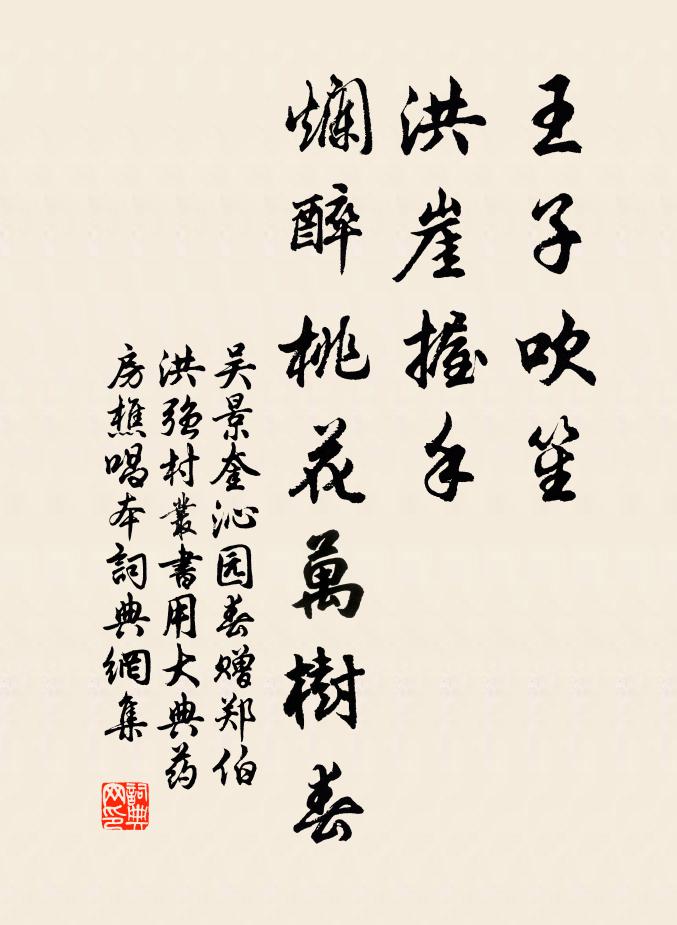 王子吹笙
洪崖握手
爛醉桃花萬樹春
吴景奎沁园春赠郑伯
洪强村叢書用大典药
房樵唱本詞典網集
詞典网印